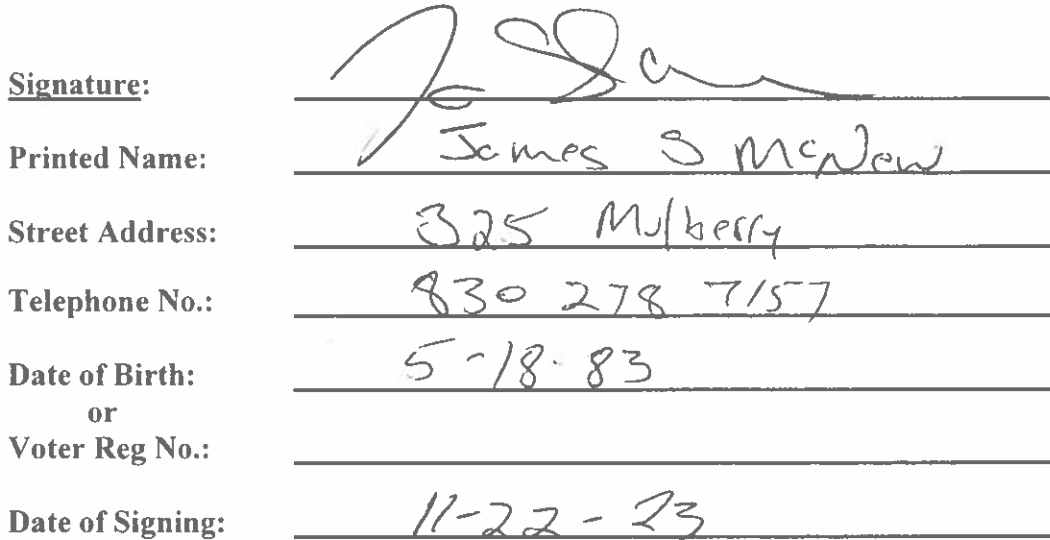 Signature:
Printed Name: James S McNew
Street Address: 325 Mulberry
Telephone No.: 830 278 7157
Date of Birth: 5-18-83
or
Voter Reg No.:
Date of Signing: 11-22-23